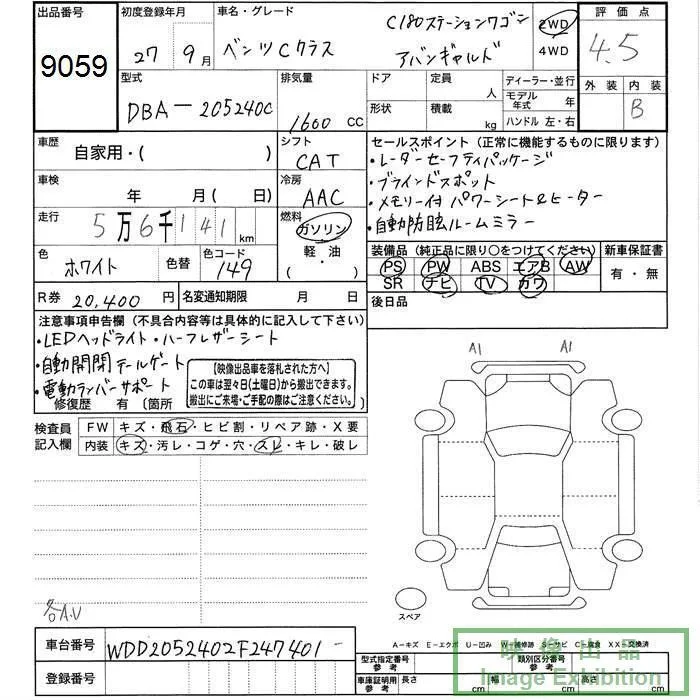 出品番号 初度登録年月 車名・グレード 評価点
9059 27 9月 ベンツCクラス C180ステーションワゴン アバンギャルド 2WD 4WD 4.5
型式 排気量 ドア 定員 ディーラー・並行 外装 内装
DBA-205240C 1600 CC 人 モデル年式 年 B
形状 積載 kg ハンドル 左・右
車歴 シフト セールスポイント (正常に機能するものに限ります)
自家用・( ) CAT ・レーダーセーフティパッケージ
車検 冷房 ・ブラインドスポット
年 月(日) AAC ・メモリー付パワーシート&ヒーター
走行 燃料 ・自動防眩ルームミラー
5万6千141km ガソリン 軽・油・( )
色 色替 色コード 装備品 (純正品に限り○をつけてください) 新車保証書
ホワイト 149 PS PW ABS エアB AW 有・無
SR ナビ TV カワ
R券 20,400円 名変通知期限 月 日 後日品
注意事項申告欄 (不具合内容等は具体的に記入して下さい)
・LEDヘッドライト・ハーフレザーシート A1 A1
・自動開閉テールゲート 【映像出品車を落札された方へ】
・電動ランバーサポート この車は翌々日(土曜日)から搬出できます。
修復歴 有 (箇所 搬出にご来場・ご手配の際はご注意ください。
検査員記入欄 FW キズ・飛石・ヒビ割・リペア跡・X要
内装 キズ・汚レ・コゲ・穴・スレ・キレ・破レ
各A.U
スペア
車台番号 WDD2052402F247401 A-キズ E-エクボ U-凹み W-補修跡 S-サビ C-腐食 XX-交換済
型式指定番号 参考 類別区分番号 参考
登録番号 車庫証明用 参考 長さ cm 幅 cm 高さ cm
映像出品
Image Exhibition